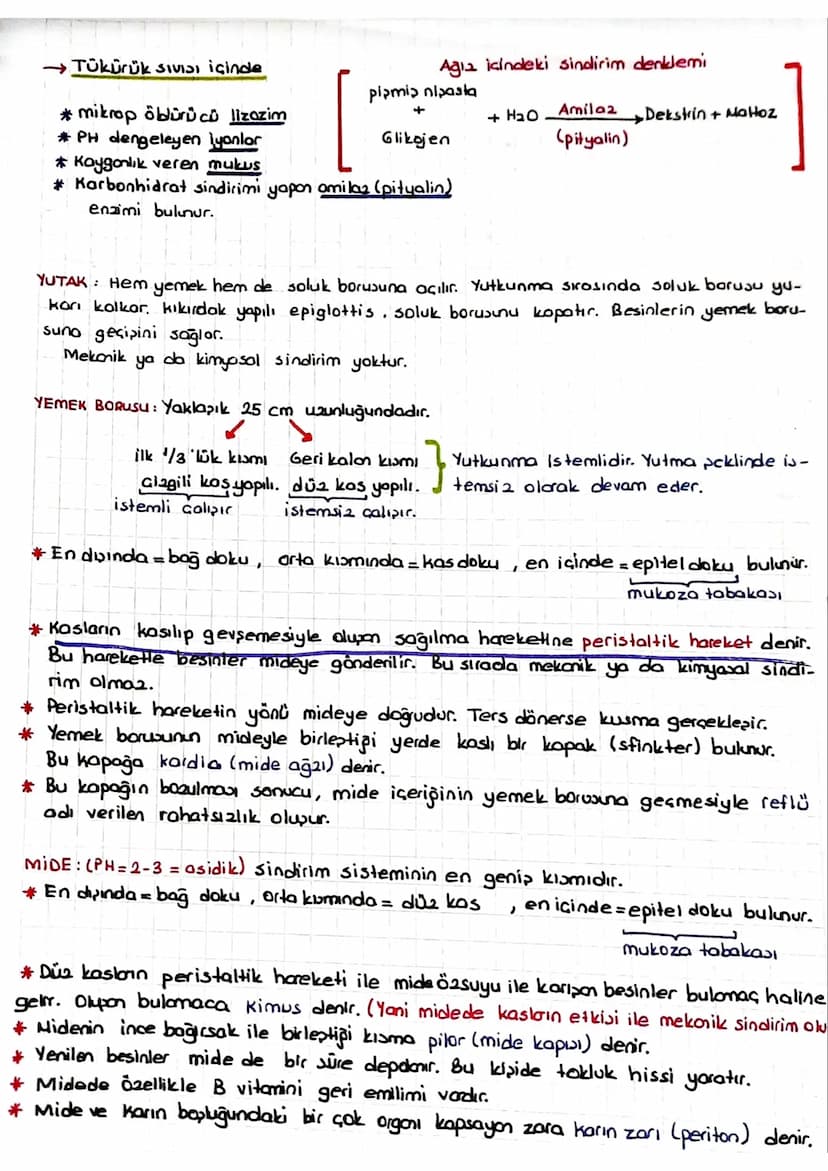 → Tükürük sıvısı içinde
* mikrop öldürücü lizozim
* PH dengeleyen iyonlar
* Kayganlık veren mukus
* Karbonhidrat sindirimi yapan amilaz (pityalin)
enzimi bulunur.
Ağız içindeki sindirim denklemi
pişmiş nişasta
+
Glikojen
+ H2O Amilaz (pityalin) → Dekstrin + Maltoz
YUTAK : Hem yemek hem de soluk borusuna açılır. Yutkunma sırasında soluk borusu yu-
karı kalkar. kıkırdak yapılı epiglottis, soluk borusunu kapatır. Besinlerin yemek boru-
suna geçişini sağlar.
Mekanik ya da kimyasal sindirim yoktur.
YEMEK BORUSU : Yaklaşık 25 cm uzunluğundadır.
ilk 1/3 'lük kısmı Geri kalan kısmı Yutkunma istemlidir. Yutma şeklinde is-
çizgili kas yapılı. düz kas yapılı. temsiz olarak devam eder.
istemli çalışır istemsiz çalışır.
* En dışında = bağ doku, orta kısmında = kas doku, en içinde = epitel doku bulunur.
mukoza tabakası
* Kasların kasılıp gevşemesiyle oluşan sağılma hareketine peristaltik hareket denir.
Bu hareketle besinler mideye gönderilir. Bu sırada mekanik ya da kimyasal sindi-
rim olmaz.
* Peristaltik hareketin yönü mideye doğrudur. Ters dönerse kusma gerçekleşir.
* Yemek borusunun mideyle birleştiği yerde kaslı bir kapak (sfinkter) bulunur.
Bu kapağa kardia (mide ağzı) denir.
* Bu kapağın bozulması sonucu, mide içeriğinin yemek borusuna geçmesiyle reflü
adı verilen rahatsızlık oluşur.
MİDE : (PH = 2-3 = asidik) sindirim sisteminin en geniş kısmıdır.
* En dışında = bağ doku, orta kısmında = düz kas , en içinde = epitel doku bulunur.
mukoza tabakası
* Düz kasların peristaltik hareketi ile mide özsuyu ile karışan besinler bulamaç haline
gelir. Oluşan bulamaca Kimus denir. (Yani midede kasların etkisi ile mekanik sindirim olu
* Midenin ince bağırsak ile birleştiği kısma pilor (mide kapısı) denir.
* Yenilen besinler mide de bir süre depolanır. Bu kişide tokluk hissi yaratır.
* Midede özellikle B vitamini geri emilimi vardır.
* Mide ve Karın boşluğundaki bir çok organı kapsayan zara karın zarı (periton) denir.